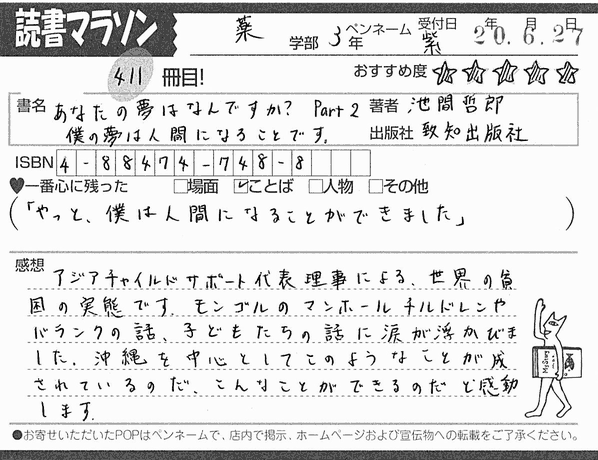 読書マラソン
薬 学部 3年 ペンネーム 紫 受付日 20年 6月 27日
411 冊目! おすすめ度 ☆☆☆☆☆
書名 あなたの夢はなんですか? Part2 著者 池間哲郎
僕の夢は人間になることです。 出版社 致知出版社
ISBN 4-88474-748-8
♥一番心に残った □場面 ☑ことば □人物 □その他
(「やっと、僕は人間になることができました」)
感想 アジアチャイルドサポート代表理事による、世界の貧
困の実態です。モンゴルのマンホールチルドレンや
バランクの話、子どもたちの話に涙が浮かびま
した。沖縄を中心としてこのようなことが成
されているのだ、こんなことができるのだと感動
します。
●お寄せいただいたPOPはペンネームで、店内で掲示、ホームページおよび宣伝物への転載をご了承ください。